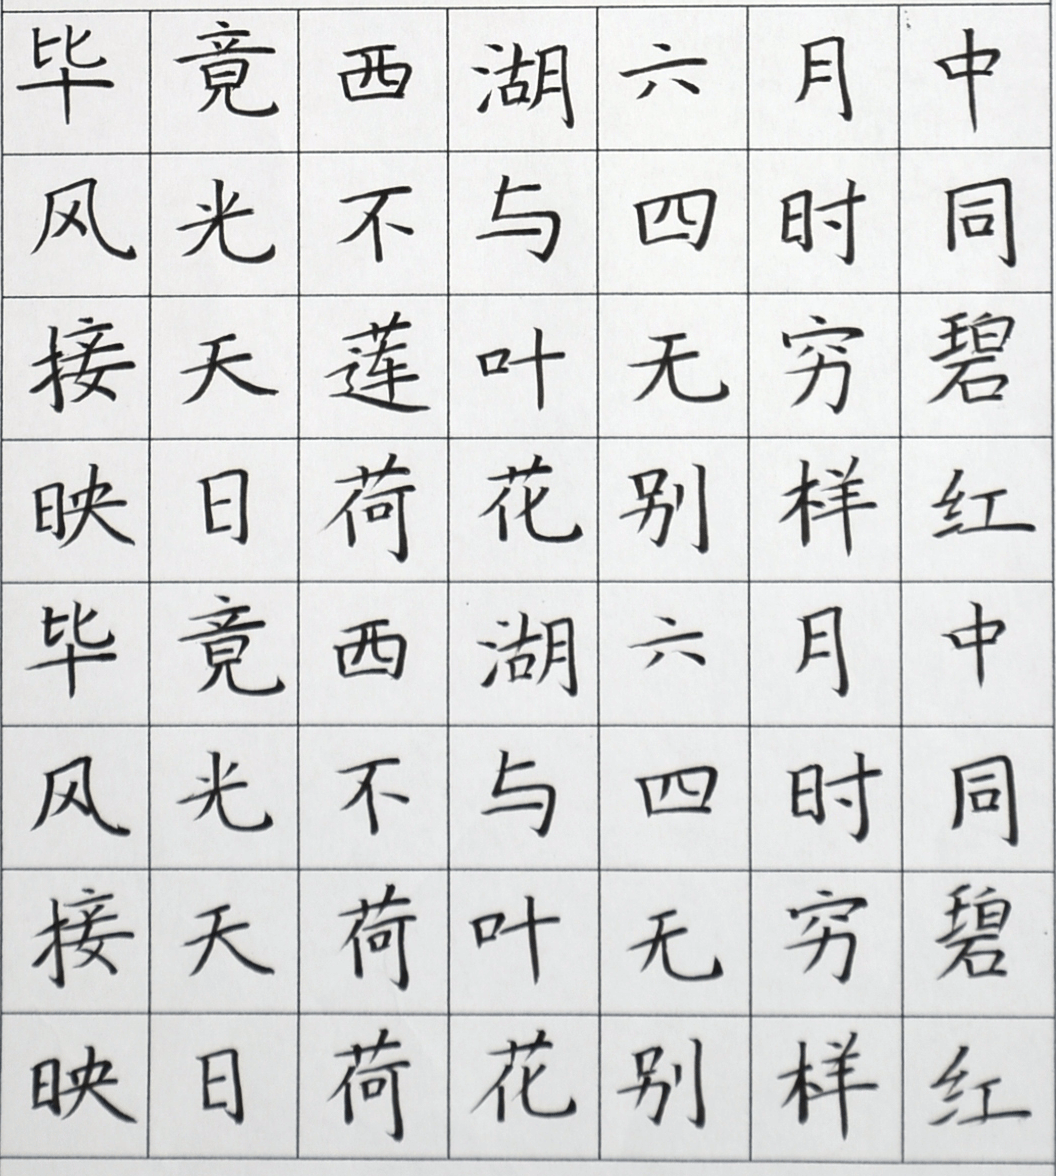 毕竟西湖六月中
风光不与四时同
接天莲叶无穷碧
映日荷花别样红
毕竟西湖六月中
风光不与四时同
接天荷叶无穷碧
映日荷花别样红